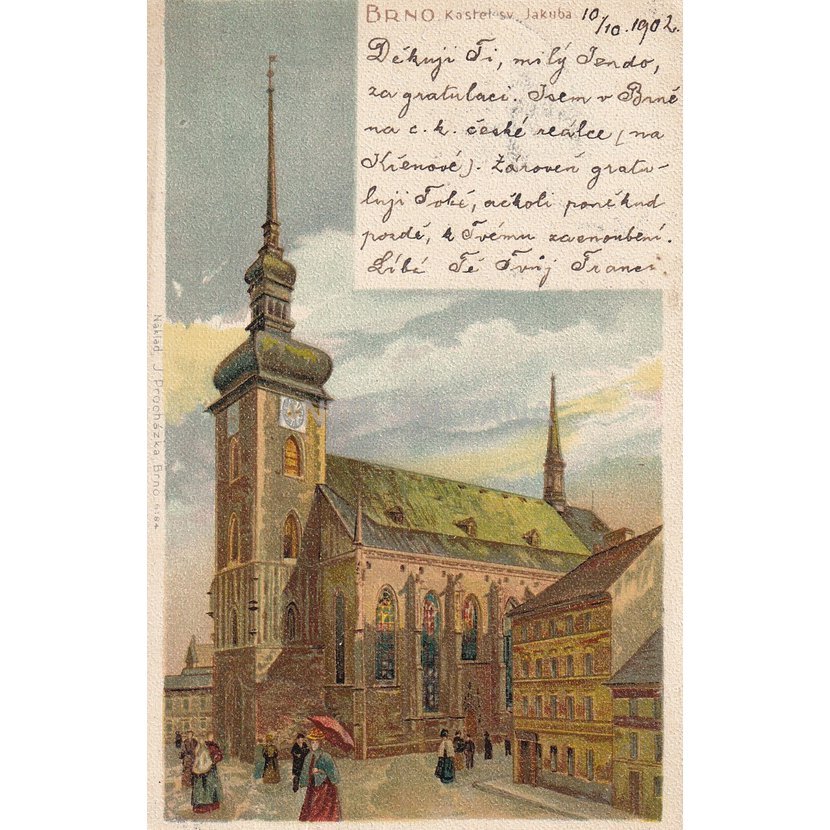 BRNO. Kostel sv. Jakuba 10/10. 1902.
Děkuji Ti, milý Jendo,
za gratulaci. Jsem v Brně
na c. k. české reálce (na
Křenové). Zároveň gratu-
luji Tobě, ačkoli poněkud
pozdě, k Tvému zasnoubení.
Líbá Tě Tvůj Franci.
Náklad J. Procházka, Brno. 6184